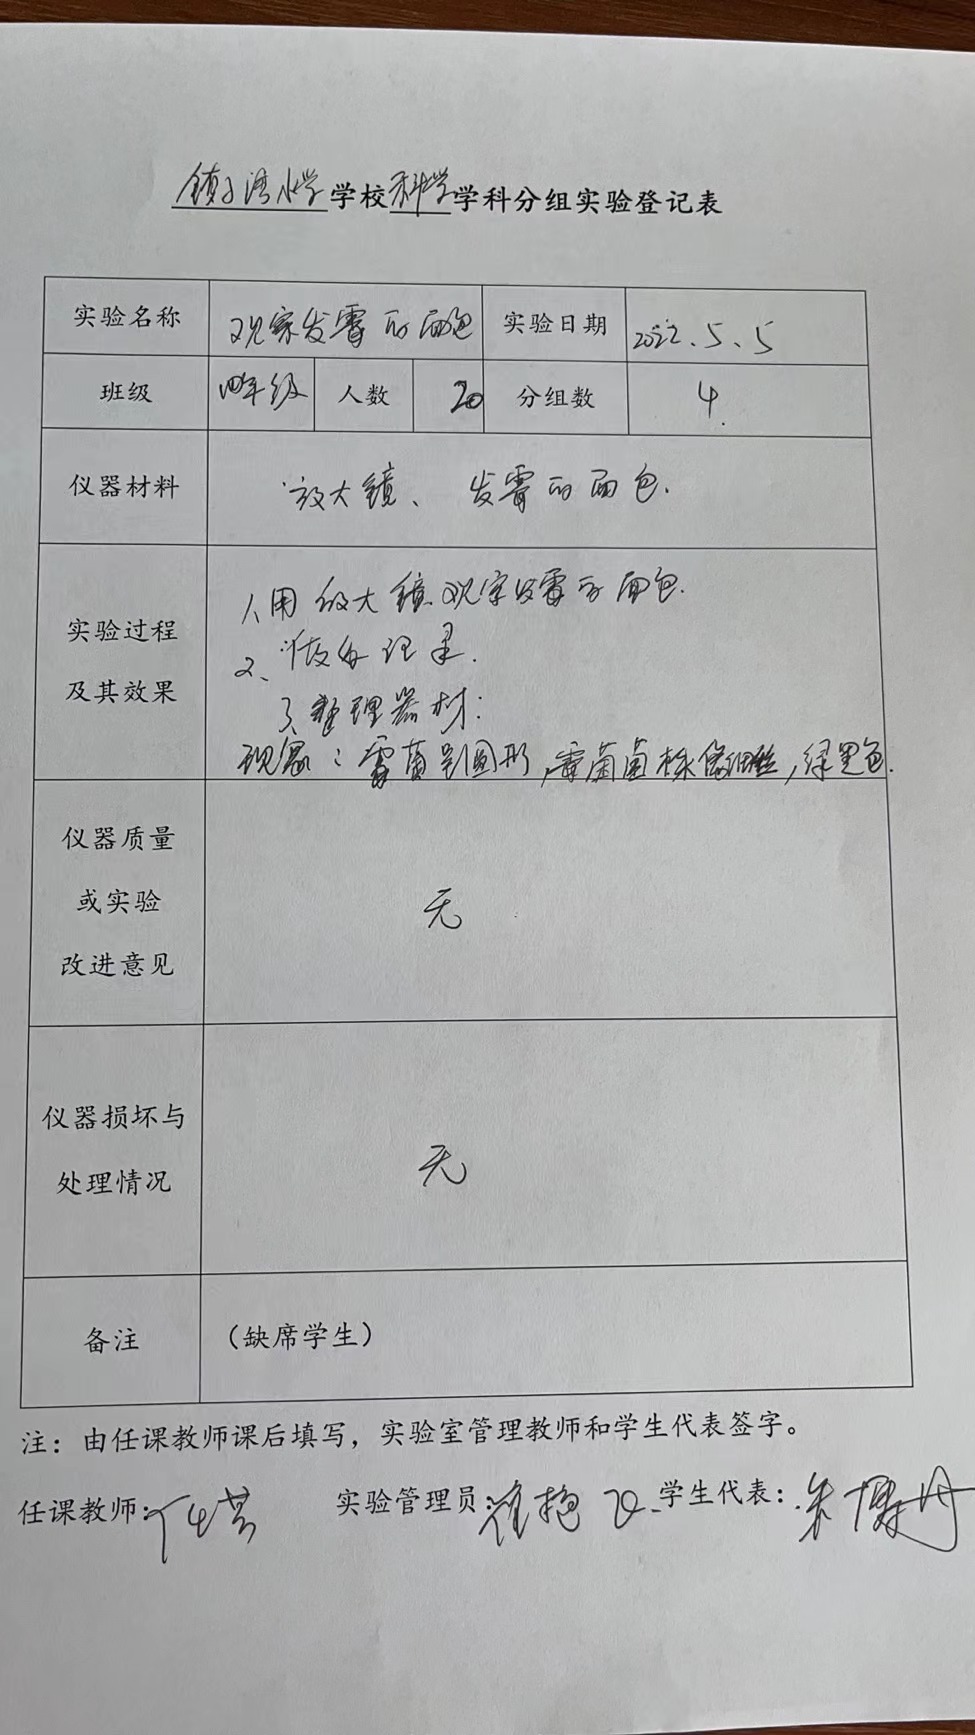 镇子湾小学学校科学学科分组实验登记表
实验名称 观察发霉的面包 实验日期 2022.5.5
班级 四年级 人数 20 分组数 4
仪器材料 放大镜、发霉的面包.
实验过程
及其效果
1、用放大镜观察发霉的面包.
2、做好记录.
3、整理器材:
现象:霉菌呈圆形,霉菌菌株像细丝,绿黑色.
仪器质量
或实验
改进意见
无
仪器损坏与
处理情况
无
备注 (缺席学生)
注:由任课教师课后填写,实验室管理教师和学生代表签字。
任课教师: 实验管理员: 学生代表:朱